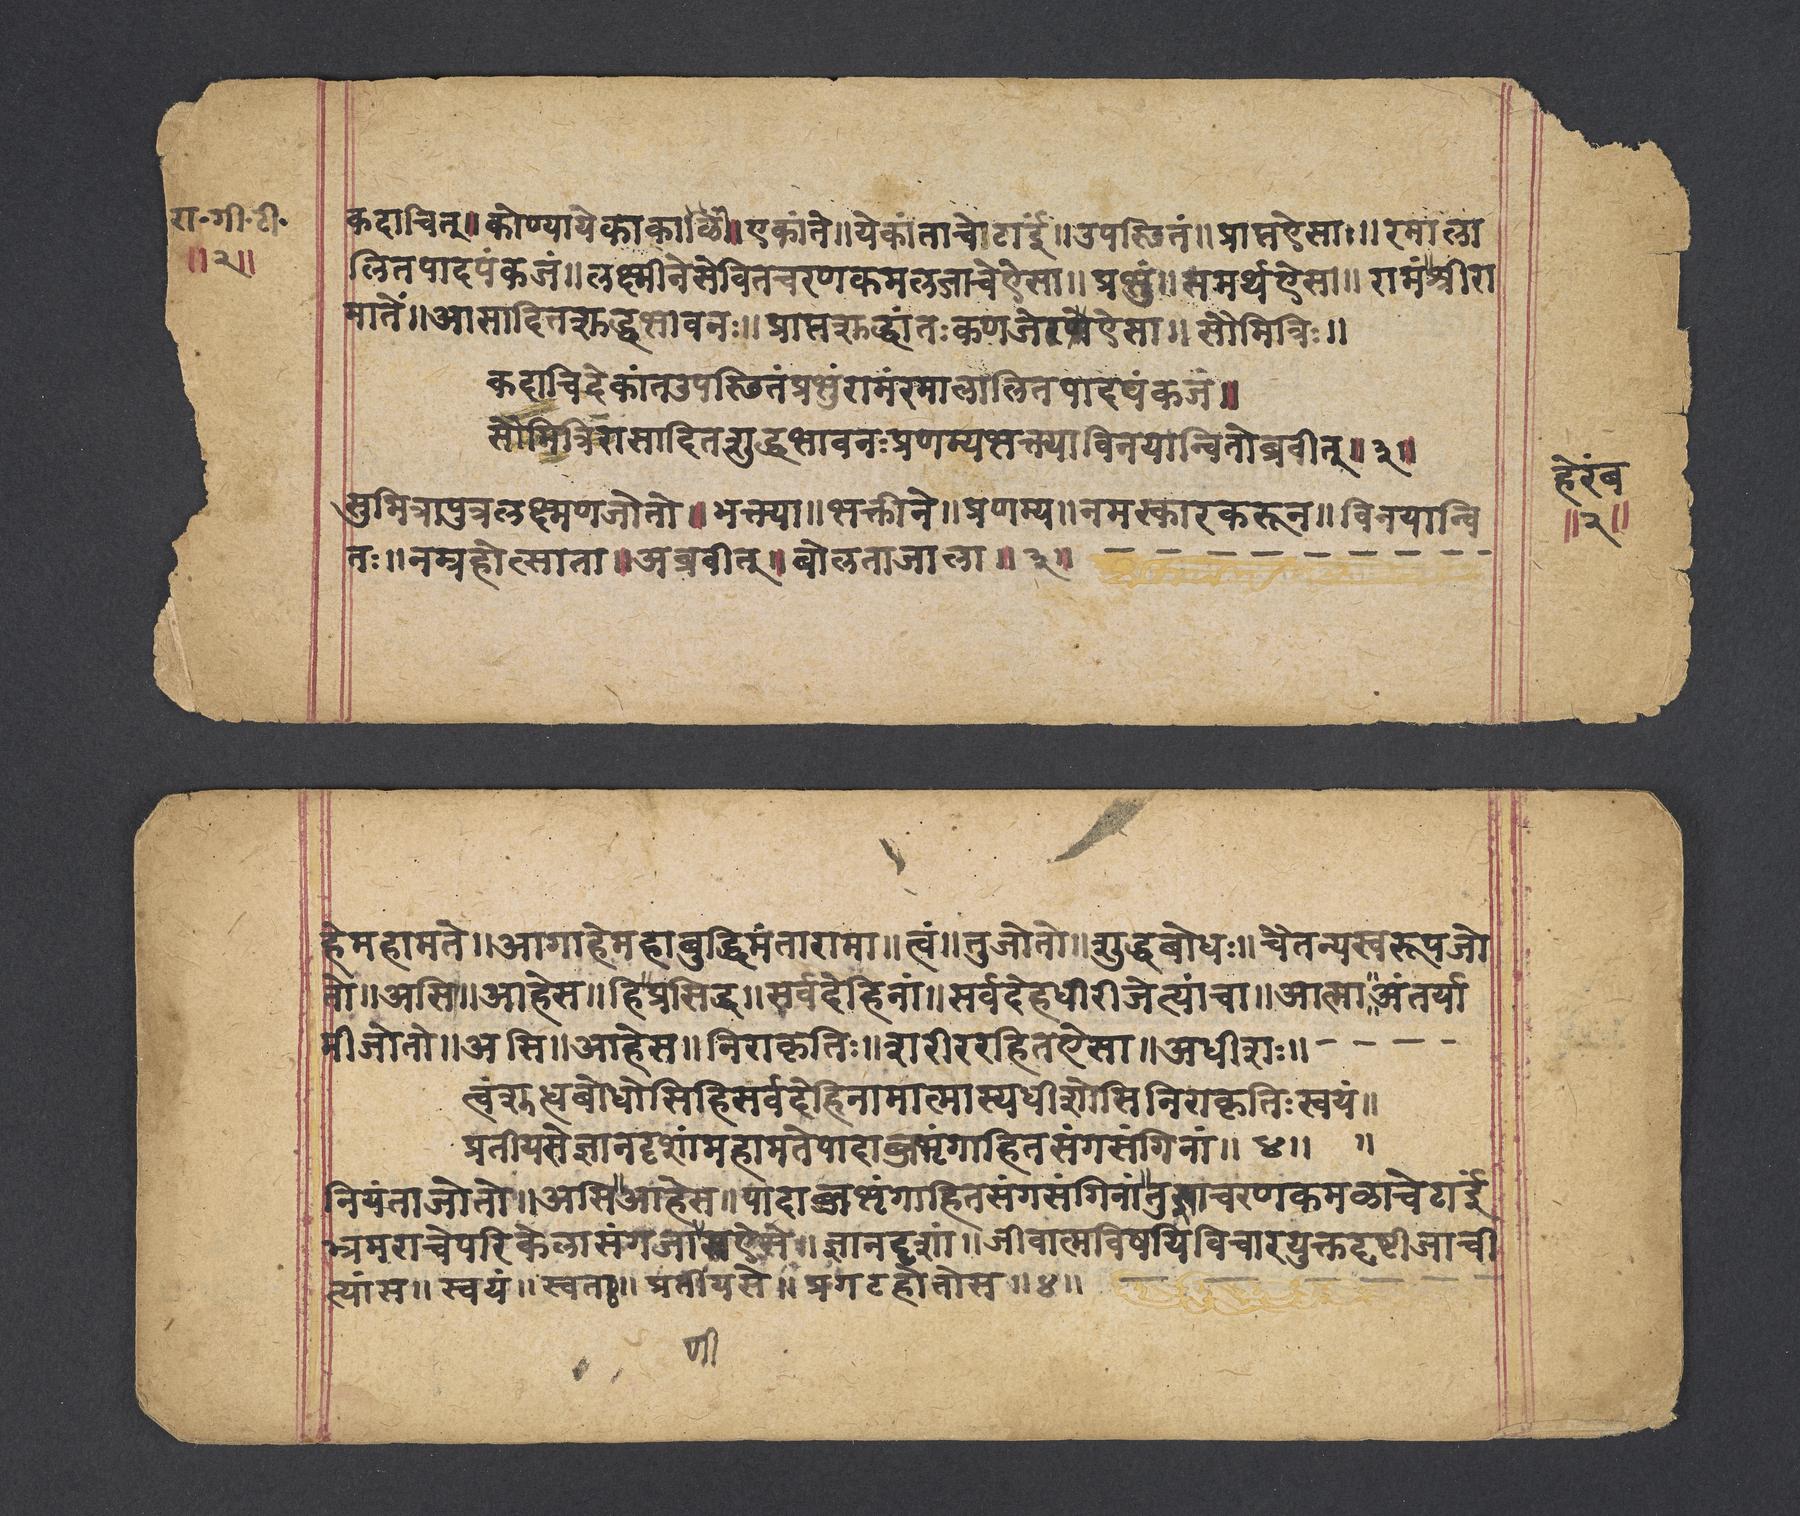 रा॰गी॰टी॰
॥२॥
कदाचित्॥कोण्यायेकाकाळिं॥एकांते॥येकांताचेठांईं॥उपस्थितं॥प्राप्तऐसा॥रमाला
लितपादपंकजं॥लक्ष्मीनेसेवितचरणकमलजाचेऐसा॥प्रभुं॥समर्थऐसा॥रामं॥श्रीरा
मातें॥आसादितशुद्धभावनः॥प्राप्तशुद्धांतःकणजेणेऐसा॥सौमित्रिः॥
कदाचिदेकांतउपस्थितंप्रभुंरामंरमालालितपादपंकजं॥
सौमित्रिरासादितशुद्धभावनःप्रणम्यभक्त्याविनयान्वितोब्रवीत्॥३॥
सुमित्रापुत्रलक्ष्मणजोतो॥भक्त्या॥भक्तीने॥प्रणम्य॥नमस्कारकरून॥विनयान्वि
तः॥नम्रहोत्साता॥अब्रवीत्॥बोलताजाला॥३॥
हेरंब
॥२॥
हेमहामते॥आगाहेमहाबुद्धिमंतारामा॥त्वं॥तुजोतो॥शुद्धबोधः॥चैतन्यस्वरूपजो
तो॥असि॥आहेस॥हि॥प्रसिद्ध॥सर्वदेहिनां॥सर्वदेहधीरीजेत्यांचा॥आत्मा॥अंतर्या
मीजोतो॥असि॥आहेस॥निराकृतिः॥शरीररहितऐसा॥अधीशः॥
त्वंशुत्धबोधोसिहिसर्वदेहिनामात्मास्यधीशोसिनिराकृतिःस्वयं॥
प्रतीयसेज्ञानदृशांमहामतेपादाब्जभृंगाहितसंगसंगिनां॥४॥
नियंताजोतो॥असि॥आहेस॥पादाब्जभृंगाहितसंगसंगिनां॥तुझाचरणकमळाचेठाईं
भ्रमराचेपरिकेलासंगजाऐसे॥ज्ञानदृशां॥जीवात्मविषयिंविचारयुक्तदृष्टीजाची
त्यांस॥स्वयं॥स्वताः॥प्रतीयसे॥प्रगटहोतोस॥४॥
णी